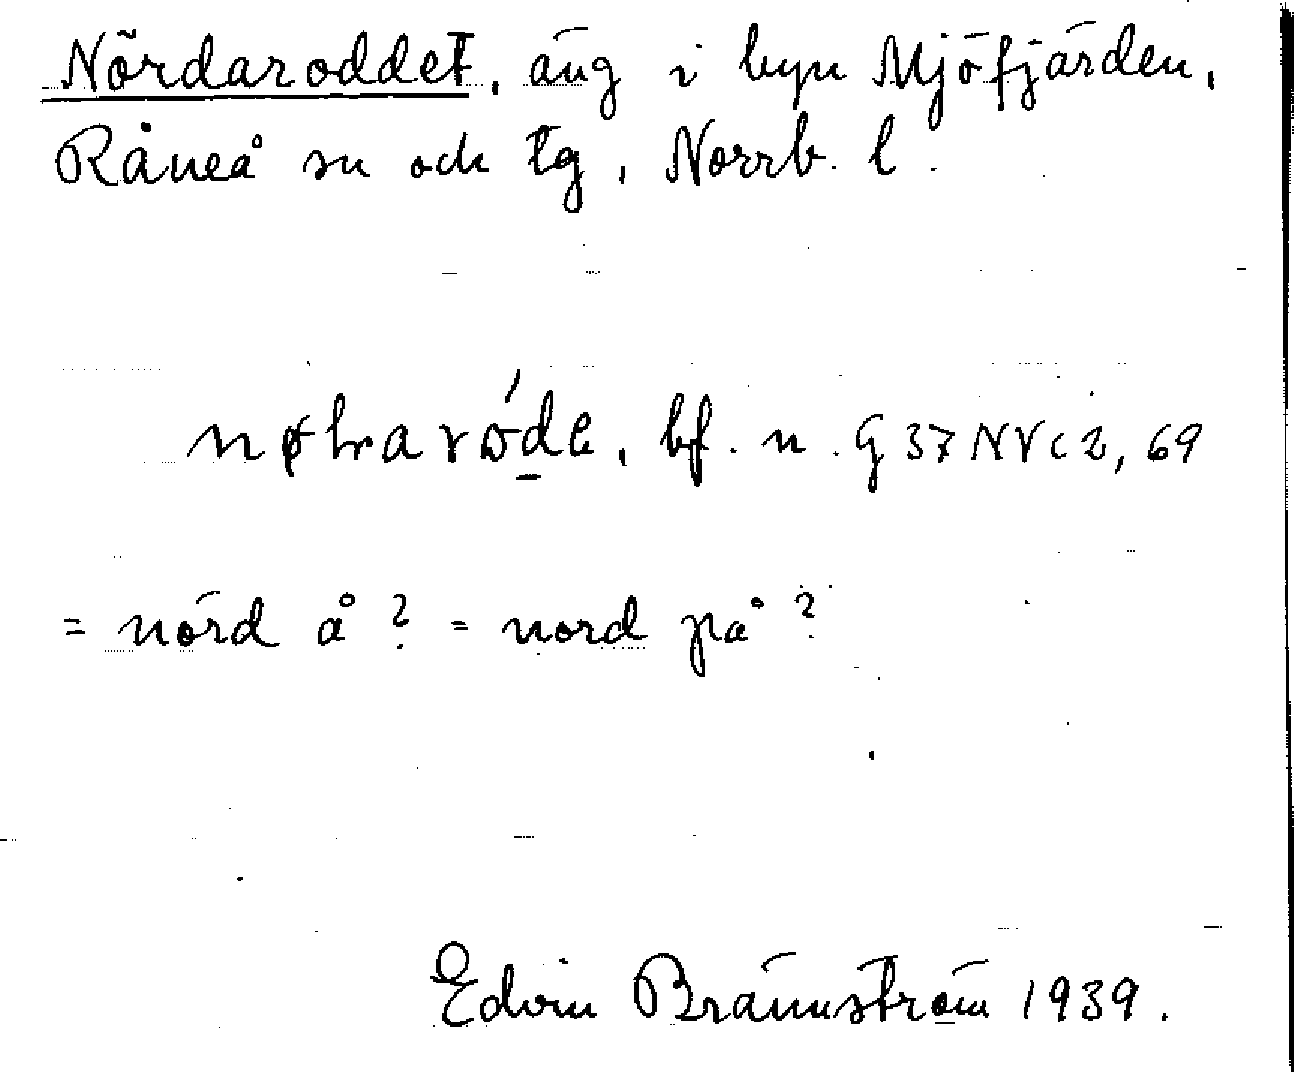 Nördaroddet, äng i byn Mjöfjärden,
Råneå sn och tg, Norrb. l.
bf. n. G 37 NV c 2, 69
= nörd å? = nord på?
Edvin Brännström 1939.